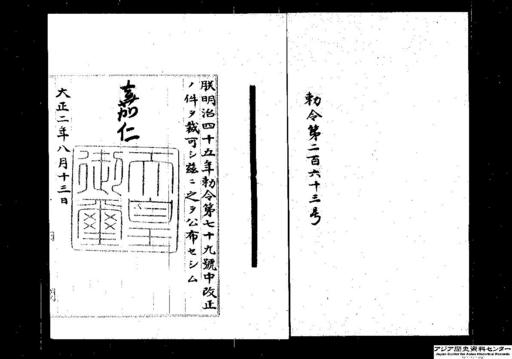 勅令第二百六十三号
朕明治四十五年勅令第七十九號中改正
ノ件ヲ裁可シ玆ニ之ヲ公布セシム
嘉仁
天皇
御璽
大正二年八月十三日
アジア歴史資料センター
Japan Center for Asian Historical Records